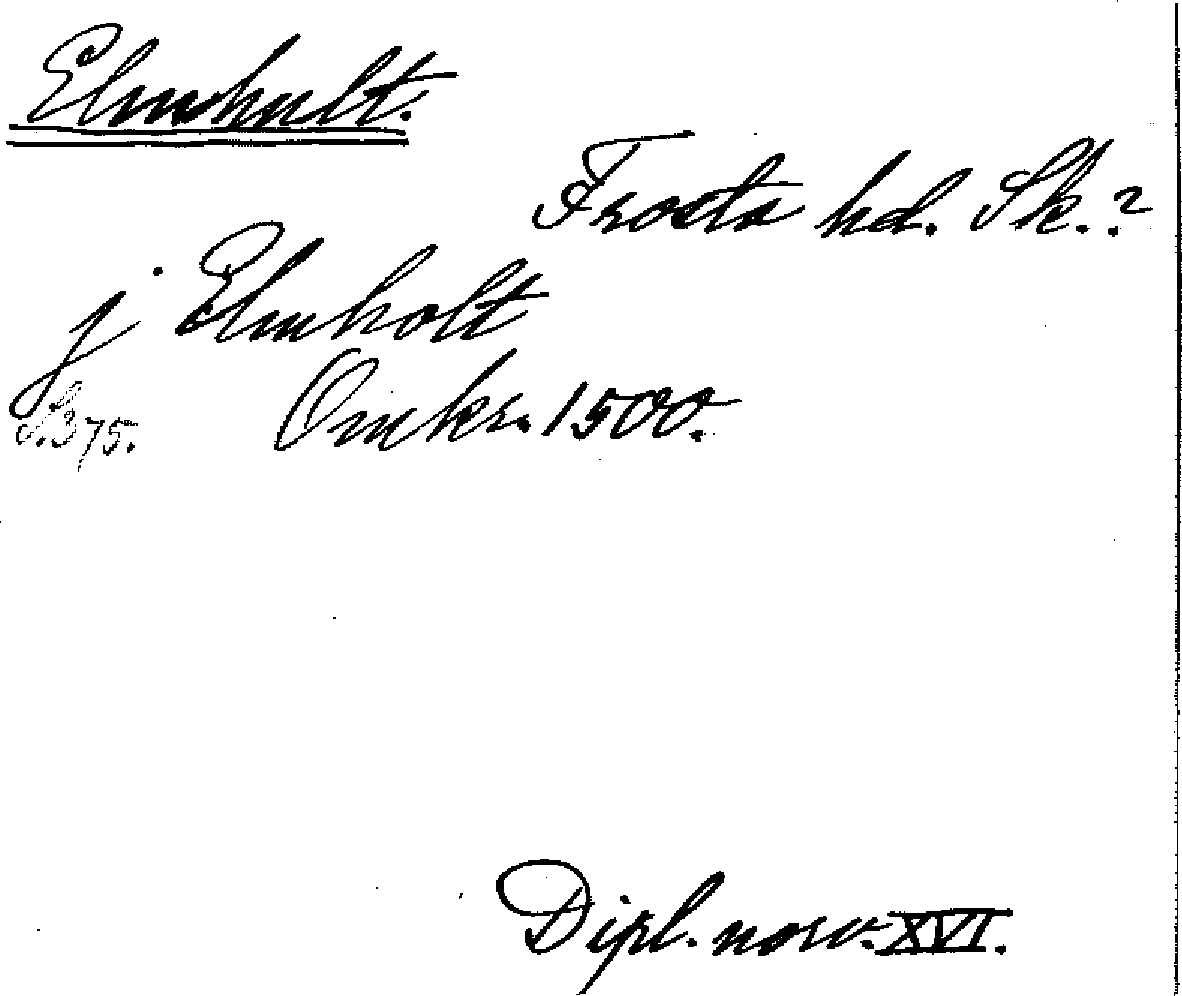 Elmhult.
Frosta hd. Sk.?
j Elmholt
S. 375. Omkr. 1500.
Dipl. norv. XVI.